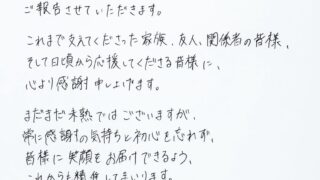 ご報告させていただきます。
これまで支えてくださった家族、友人、関係者の皆様、
そして日頃から応援してくださる皆様に、
心より感謝申し上げます。
まだまだ未熟ではございますが、
常に感謝の気持ちと初心を忘れず、
皆様に笑顔をお届けできるよう、
これからも精進してまいります。